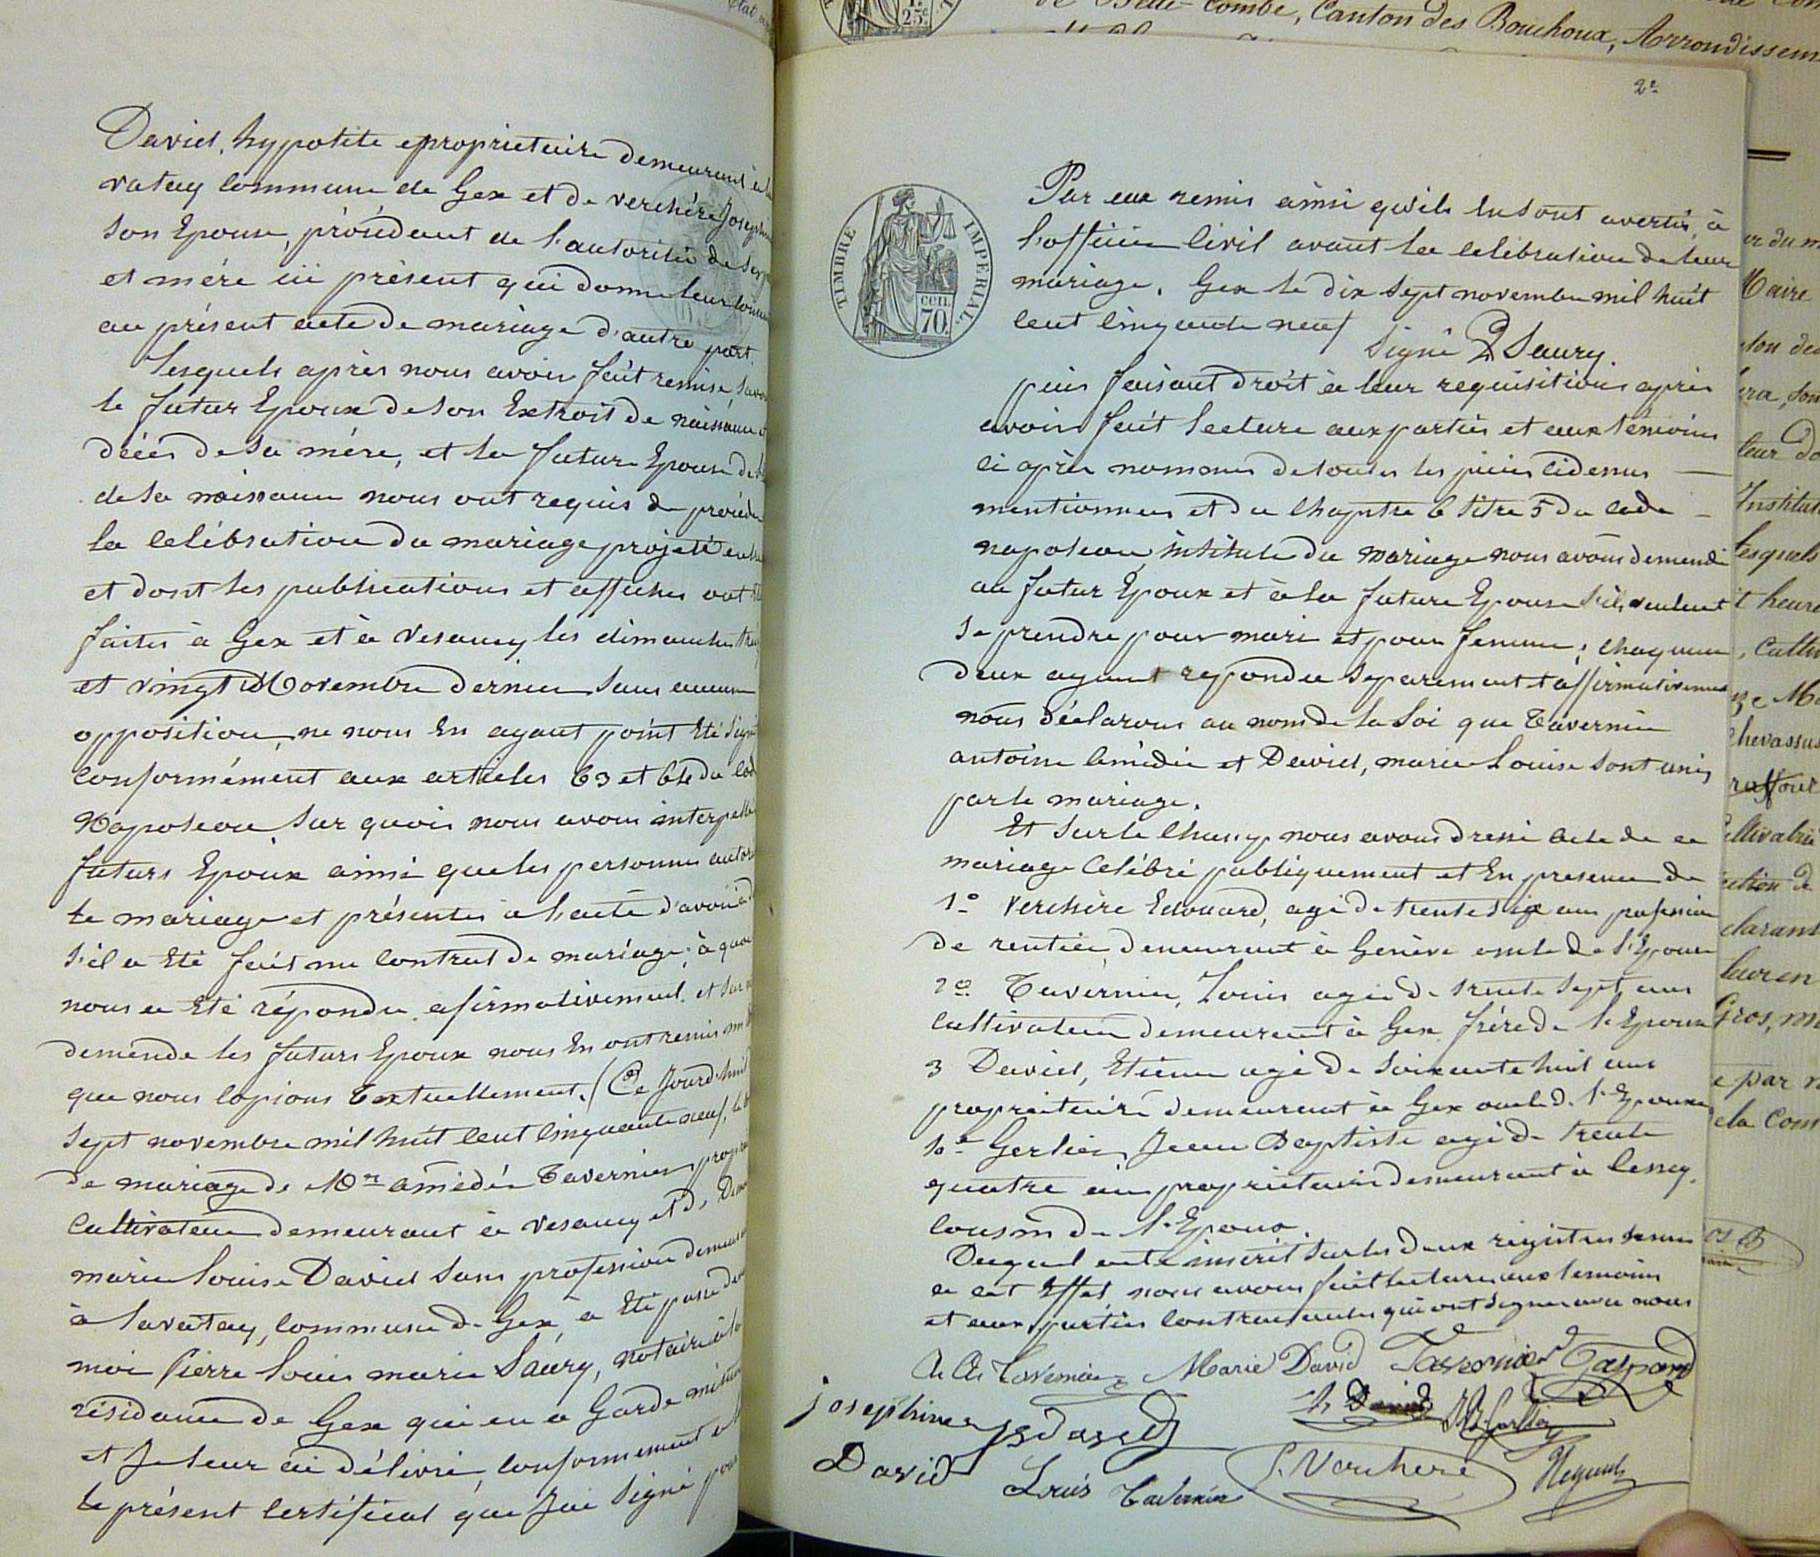 David, hypolite propriétaire demeurant à la
vatay commune de Gex et de verchère Joséphine
son Epouse, procédant de l'autorité de ses père
et mére ici présent qui donne leur
au présent acte de mariage d'autre part.
Lesquels après nous avoir fait remise, savoir
le futur Epoux de son Extrait de naissance et
décés de sa mére, et la future Epouse de
de sa naissance nous ont requis de procéder
la celébration du mariage projeté entre
et dont les publications et affiches ont été
faites à Gex et à Vesancy les dimanches treize
et vingt Novembre dernier sans aucune
opposition, ne nous En ayant point Eté signifié
conformément aux articles 63 et 64 du code
Napoleon, sur quoi nous avons interpellé
futurs Epoux ainsi que les personnes
le mariage et présentes à l'acte d'avoir à
s'il a Eté fait un contrat de mariage; à quoi
nous a Eté répondu afirmativement. et sur
demende les futurs Epoux nous En ont remis un
que nous copions textuellement. (Ce Jourd'hui
sept novembre mil huit cent cinquante neuf, le
de mariage de Mr amédée Tavernier
cultivateur demeurant à vesancy et de
marie Louise David sans profession
à Lavatay, commune de Gex, a Eté passé
moi Pierre Louis marie Saury, notaire à la
résidence de Gex qui en a Gardé minute
et Je leur ai délivré conformement
le présent certificat que J'ai Signé pour
25c
de Belle-combe, Canton des Bouchoux, Arrondissem
2e
TIMBRE IMPERIAL.
CEN.
70.
Par eux remis ainsi qu'ils en sont avertis, à
l'officier Civil avant la celébration de leur
mariage. Gex le dix sept novembre mil huit
cent cinquante neuf
Signé Saury.
puis faisant droit à leur requisitions après
avoir fait lecture aux parties et aux témoins
ci après nommés de toutes les pièces cidessus
mentionnées et du chapitre 6 titre 5 du Code
napoleon, intitulé du mariage nous avons demendé
au futur Epoux et à la future Epouse s'ils veulent
se prendre pour mari et pour femme; chaquun
deux ayant repondu séparement et affirmativement
nous déclarons au nom de la Loi que Tavernier
antoine amédée et David, marie Louise sont unis
par le mariage.
Et sur le champ nous avons dressé acte de ce
mariage Celébré publiquement et En presence de
1° Verchère Edouard, agé de trente six ans profession
de rentier demeurant à Genève oncle de l'Epouse
2° Tavernier, Louis agé de trente sept ans
cultivateur demeurant à Gex frére de l'Epoux
3 David, Etienne agé de soixante huit ans
propriétaire demeurant à Gex oncle de l'Epouse
4° Gerlier Jean Baptiste agé de trente
quatre ans propriétaire demeurant à Cessy,
cousin de l'Epoux.
Duquel acte inscrit sur les deux registres tenus
à cet Effet nous avons fait lecture aux temoins
et aux parties contractantes qui ont signer avec nous
A A Tavernier Marie David Tavernier Gaspard
Josephine David
David Louis Tavernier Verchere
er du m
Maire
ton de
leur do
Institut
lesquels
t heure
, Culti
chevassus
clarant
Gros, m
e par n
ela Com